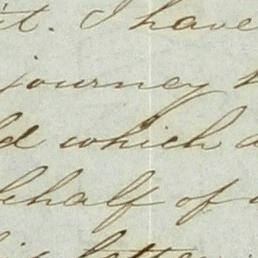 it. I have
journey
which
behalf of
letter